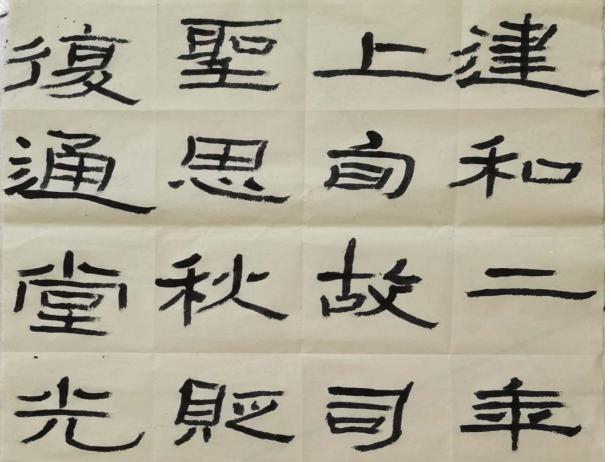 建和二年
上旬故司
聖思秋貶
復通堂光